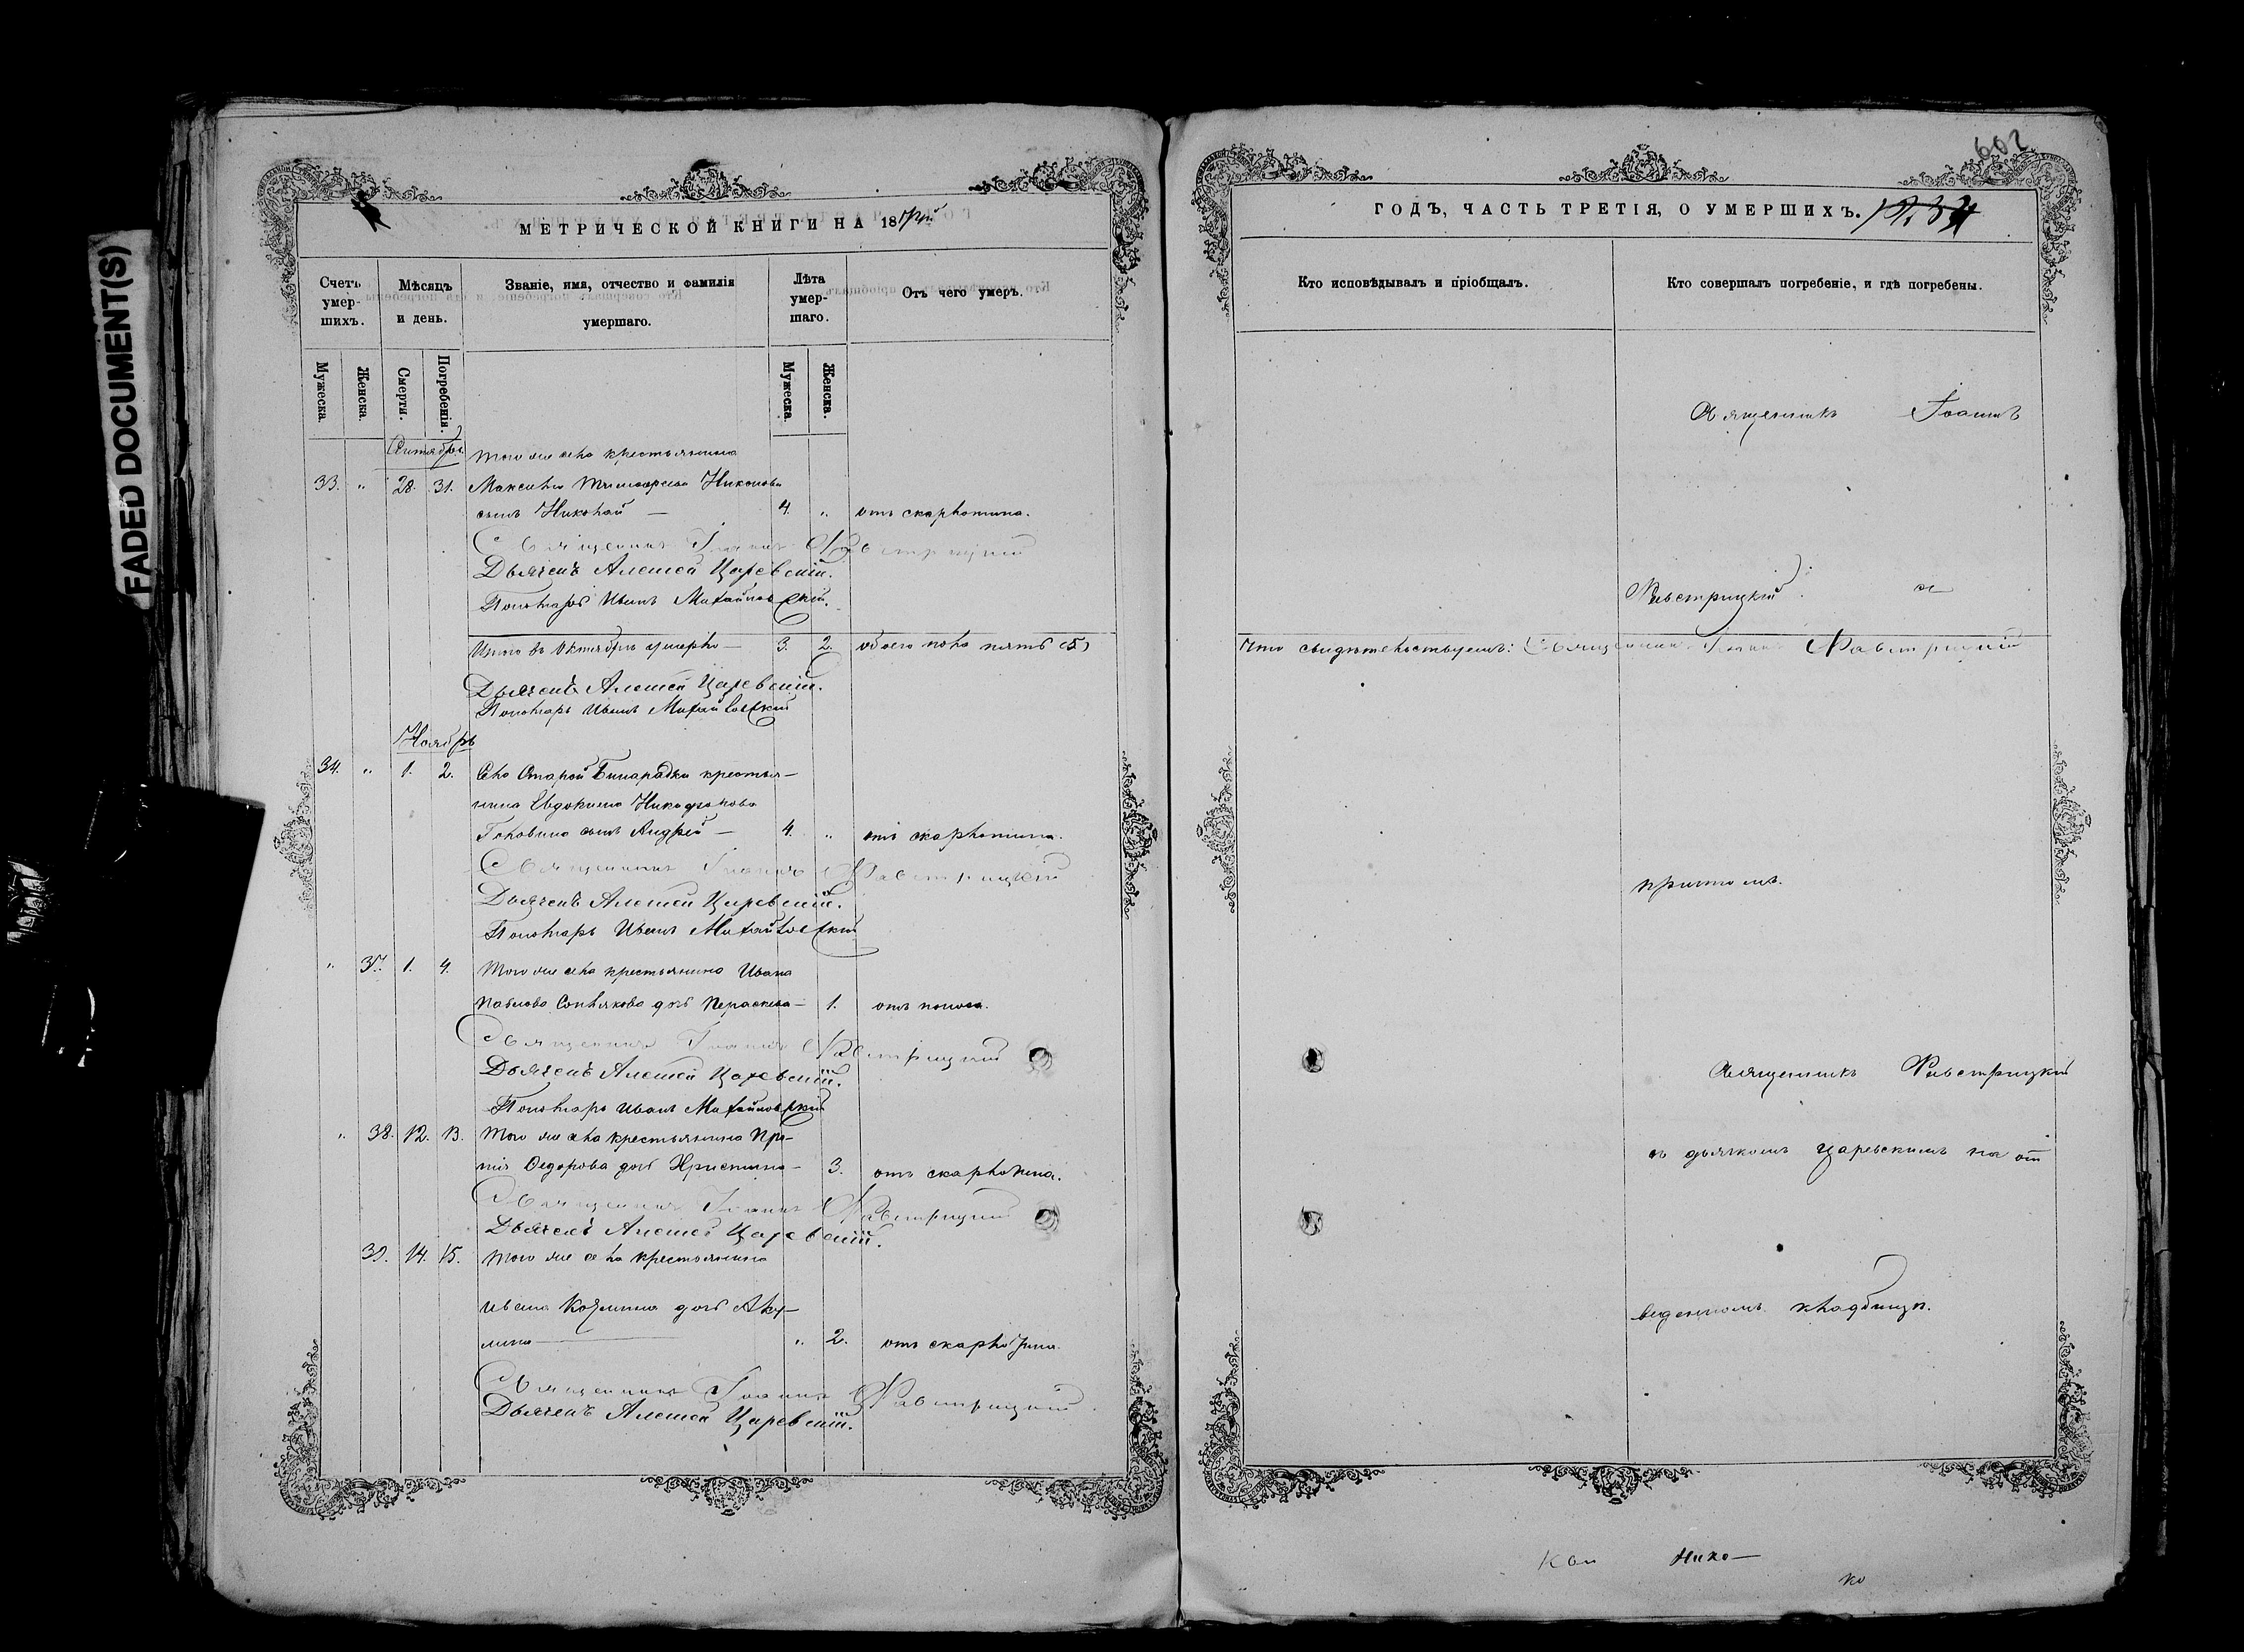 FADED DOCUMENT(S)
МЕТРИЧЕСКОЙ КНИГИ НА 18
Счетъ умер-шихъ.
Мѣсяцъ и день.
Званіе, имя, отчество и фамилія умершаго.
Лѣта умер-шаго.
Отъ чего умеръ.
Мужеска. Женска. Смерти. Погребенія. Мужеска. Женска.
того же села крестьянина
33. " 28. 31. Максима Тимофеева Никонова
сынъ Николай — 4. " отъ скарлатина.
Священникъ Іоаннъ
Дьячекъ Алексей Царевскій.
Пономарь Иванъ Михайловскій.
Итого въ Октябрѣ умерло — 3. 2. обоего пола пять (5)
Дьячекъ Алексей Царевскій.
Пономарь Иванъ Михайловскій
Ноябрь
34. " 1. 2. Села Старой Бинарадки крестья-
нина Евдокима Никифорова
сынъ Андрей — 4. " отъ скарлатина.
Священникъ Іоаннъ
Дьячекъ Алексей Царевскій.
Пономарь Иванъ Михайловскій
" 37. 1. 4. Того же села крестьянина Ивана
Павлова дочь Параскева — 1. отъ поноса.
Священникъ Іоаннъ
Дьячекъ Алексей Царевскій.
Пономарь Иванъ Михайловскій
" 38. 12. 13. Того же села крестьянина
Федорова дочь Христина — 3. отъ скарлатина.
Священникъ Іоаннъ
Дьячекъ Алексей Царевскій.
39. 14. 15. Того же села крестьянина
Ивана Козмина дочь Аку-
лина — " 2. отъ скарлатина.
Священникъ Іоаннъ
Дьячекъ Алексей Царевскій.
602
ГОДЪ, ЧАСТЬ ТРЕТІЯ, О УМЕРШИХЪ.
Кто исповѣдывалъ и пріобщалъ.
Кто совершалъ погребеніе, и гдѣ погребены.
Священникъ Іоаннъ
съ
что свидѣтельствуемъ: Священникъ Іоаннъ
причтомъ.
Священникъ
съ дьячкомъ Царевскимъ на от
веденномъ кладбищѣ.
Нико—
ко